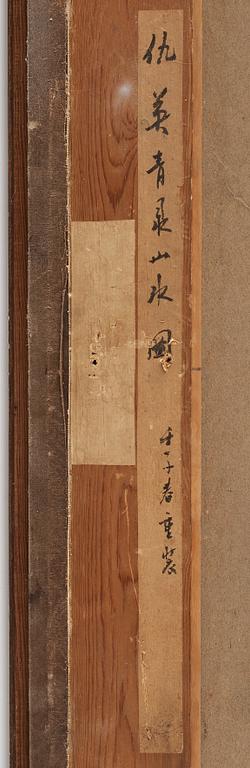 仇英青录山水圖
壬子春重裝